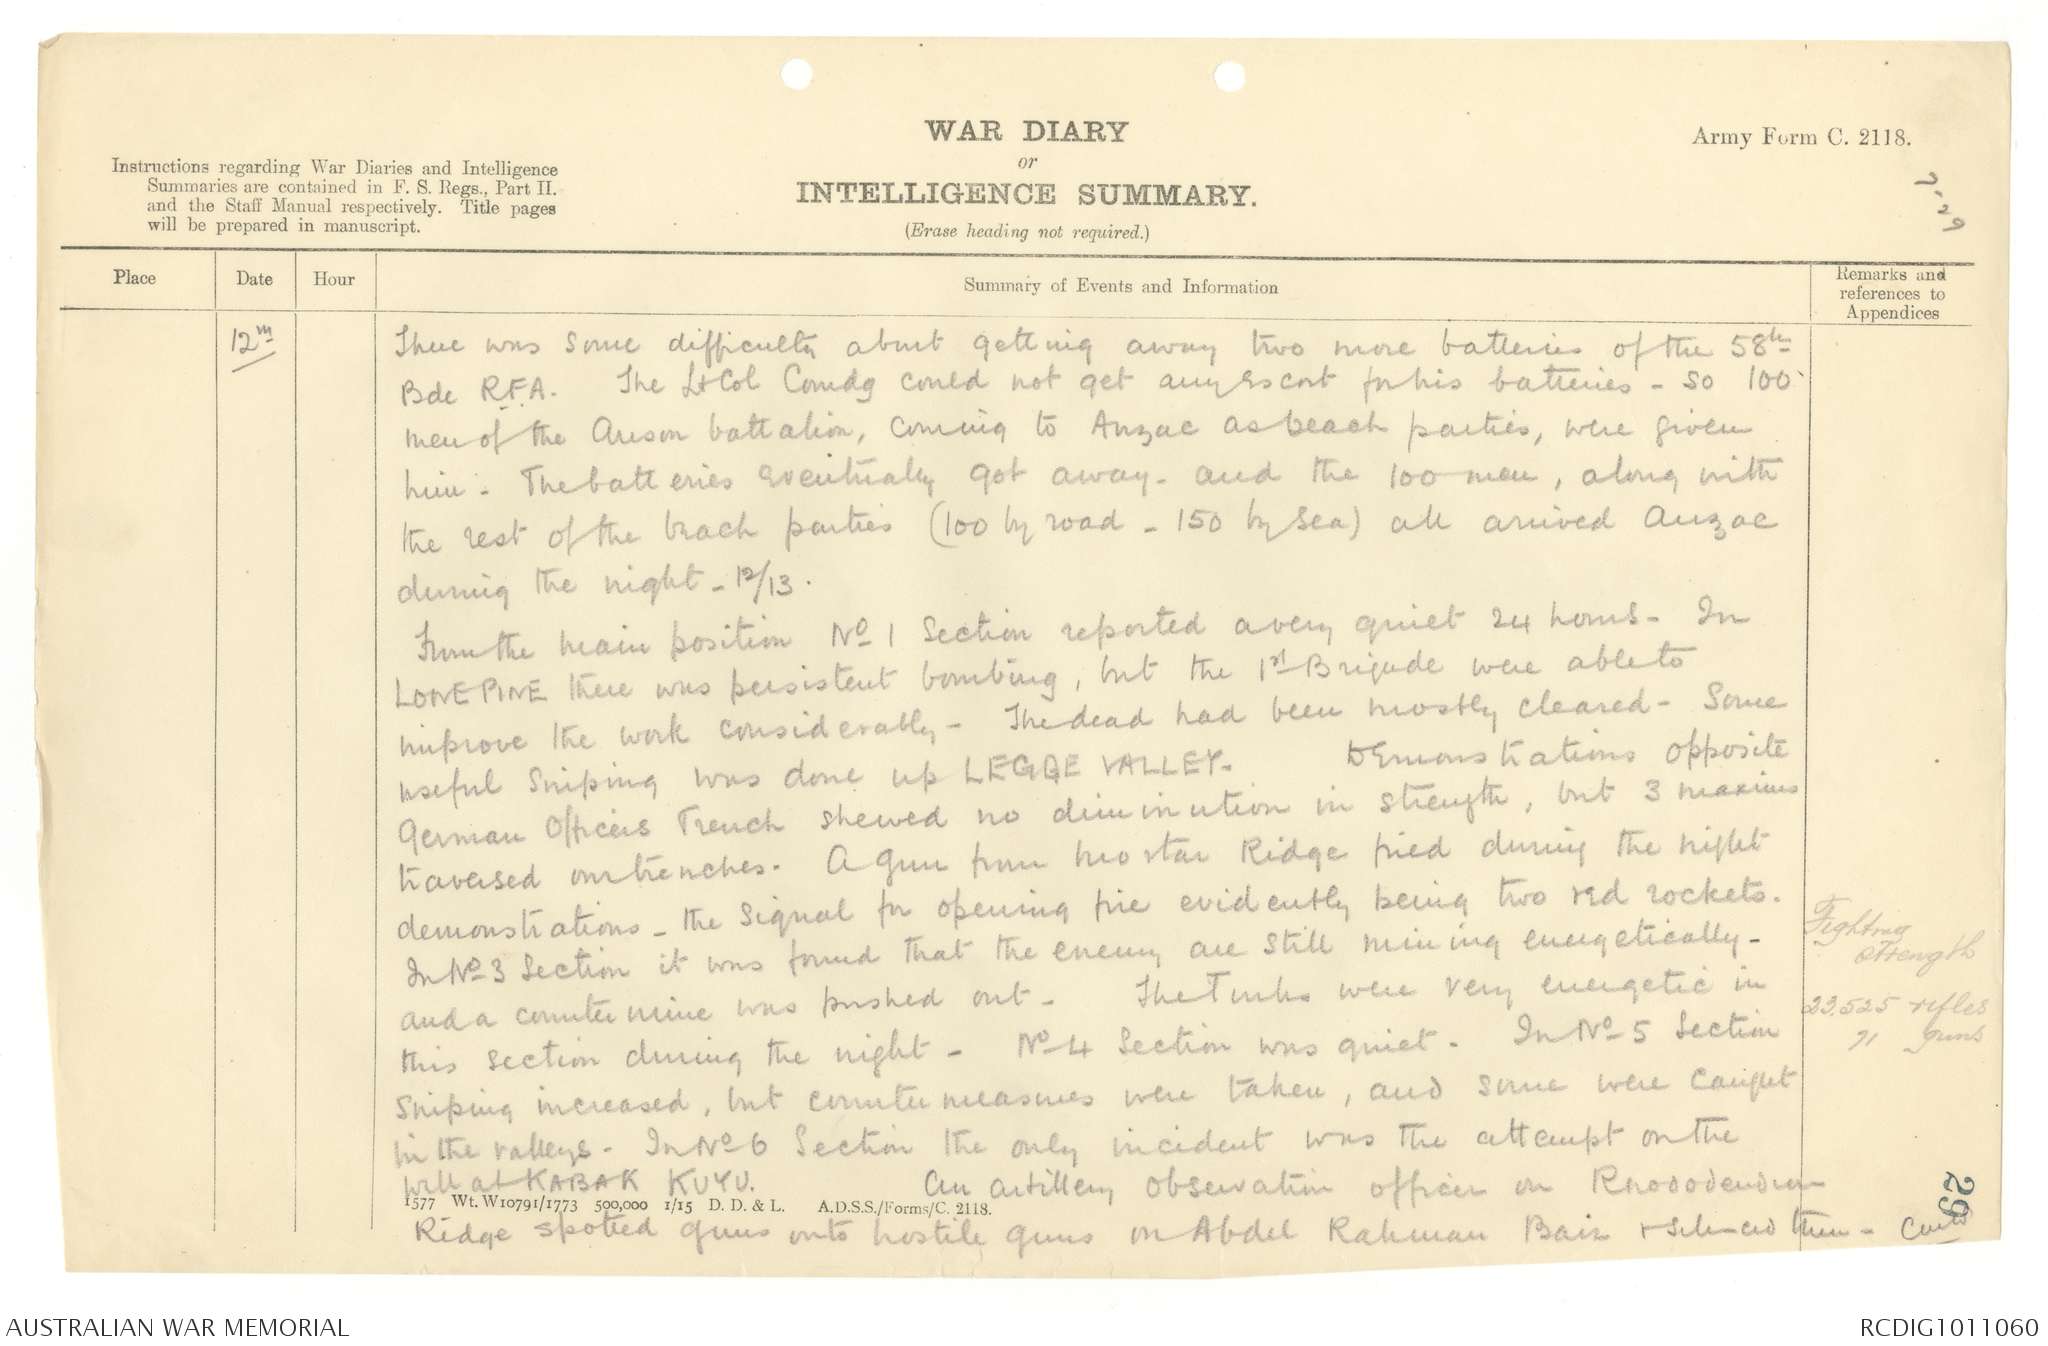 WAR DIARY
or
INTELLIGENCE SUMMARY.
(Erase heading not required.)
Army Form C. 2118.
Instructions regarding War Diaries and Intelligence
Summaries are contained in F. S. Regs., Part II.
and the Staff Manual respectively. Title pages
will be prepared in manuscript.
7-29
Place
Date
Hour
Summary of Events and Information
Remarks and
references to
Appendices
12th
There was some difficulty about getting away two more batteries of the 58th
Bde R.F.A. The Lt Col Comdg could not get any escort for his batteries - so 100
men of the Anson battalion, coming to Anzac as beach parties, were given
him - The batteries eventually got away - and the 100 men, along with
the rest of the beach parties (100 by road - 150 by sea) all arrived Anzac
during the night - 12/13.
From the main position No 1 Section reported a very quiet 24 hours - In
LONE PINE there was persistent bombing, but the 1st Brigade were able to
improve the work considerably - The dead had been mostly cleared - Some
useful sniping was done up LEGGE VALLEY. Demonstrations opposite
German Officers Trench shewed no diminution in strength, but 3 maxims
traversed our trenches. A gun from Mortar Ridge fired during the night
demonstrations - the signal for opening fire evidently being two red rockets.
In No 3 Section it was found that the enemy are still mining energetically -
and a counter mine was pushed out - The Turks were very energetic in
this section during the night - No 4 Section was quiet - In No 5 Section
Sniping increased, but counter measures were taken, and some were caught
in the valleys - In No 6 Section the only incident was the attempt on the
well at KABAK KUYU. An artillery observation officer on Rhododendron
Ridge spotted guns onto hostile guns on Abdel Rahman Bair & silenced them - Contd
Fighting
strength
23.525 rifles
71 guns
1577 Wt. W10791/1773 500,000 1/15 D. D. & L. A.D.S.S./Forms/C. 2118.
29
AUSTRALIAN WAR MEMORIAL
RCDIG1011060